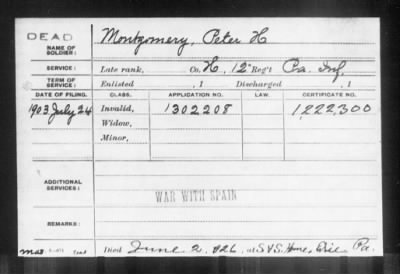 DEAD
NAME OF SOLDIER: Montgomery, Peter H
SERVICE: Late rank, Co. H, 12" Reg't Pa. Inf.
TERM OF SERVICE: Enlisted , 1 Discharged , 1
DATE OF FILING. CLASS. APPLICATION NO. LAW. CERTIFICATE NO.
1903 July 24 Invalid, 1302208 1,222,300
Widow,
Minor,
ADDITIONAL SERVICES:
WAR WITH SPAIN
REMARKS:
Died June 2, 1926, at S & S. Home, Erie Pa.